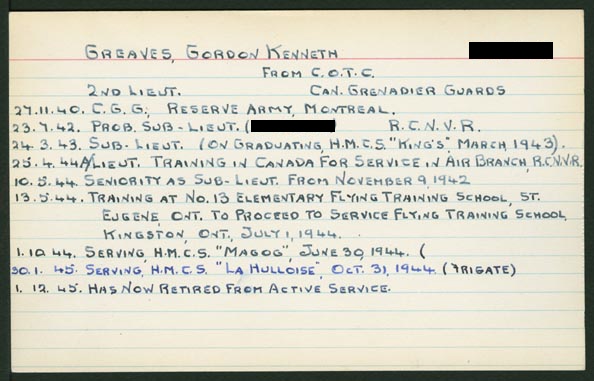 GREAVES, GORDON KENNETH
FROM C.O.T.C.
2ND LIEUT. CAN. GRENADIER GUARDS
27.11.40. C.G.G., RESERVE ARMY, MONTREAL.
23.7.42. PROB. SUB-LIEUT. ( R.C.N.V.R.
24.3.43. SUB-LIEUT. (ON GRADUATING, H.M.C.S. "KING'S" MARCH 1943).
25.4.44 A/LIEUT. TRAINING IN CANADA FOR SERVICE IN AIR BRANCH, R.C.N.V.R.
10.5.44. SENIORITY AS SUB-LIEUT. FROM NOVEMBER 9, 1942
13.5.44. TRAINING AT NO. 13 ELEMENTARY FLYING TRAINING SCHOOL, ST.
EUGENE, ONT. TO PROCEED TO SERVICE FLYING TRAINING SCHOOL,
KINGSTON, ONT., JULY 1, 1944.
1.10.44. SERVING, H.M.C.S. "MAGOG", JUNE 30, 1944. (
30.1.45. SERVING, H.M.C.S. "LA HULLOISE", OCT. 31, 1944. (FRIGATE)
1.12.45. HAS NOW RETIRED FROM ACTIVE SERVICE.